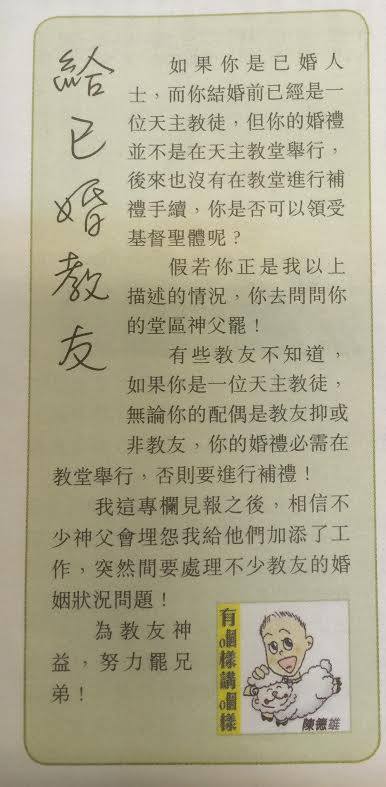 給已婚教友
如果你是已婚人
士，而你結婚前已經是一
位天主教徒，但你的婚禮
並不是在天主教堂舉行，
後來也沒有在教堂進行補
禮手續，你是否可以領受
基督聖體呢？
假若你正是我以上
描述的情況，你去問問你
的堂區神父罷！
有些教友不知道，
如果你是一位天主教徒，
無論你的配偶是教友抑或
非教友，你的婚禮必需在
教堂舉行，否則要進行補禮！
我這專欄見報之後，相信不
少神父會埋怨我給他們加添了工
作，突然間要處理不少教友的婚
姻狀況問題！
為教友神
益，努力罷兄
弟！
有嗰樣講嗰樣
陳德雄